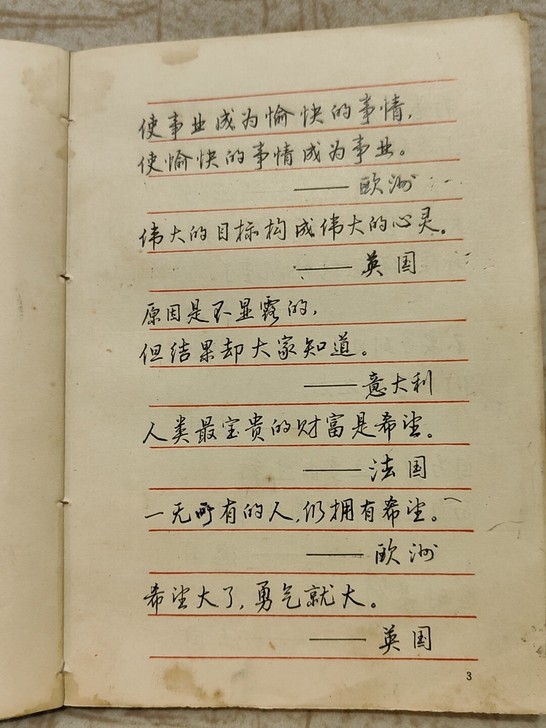 使事业成为愉快的事情,
使愉快的事情成为事业。
——欧洲
伟大的目标构成伟大的心灵。
——英国
原因是不显露的,
但结果却大家知道。
——意大利
人类最宝贵的财富是希望。
——法国
一无所有的人,仍拥有希望。
——欧洲
希望大了,勇气就大。
——英国
3